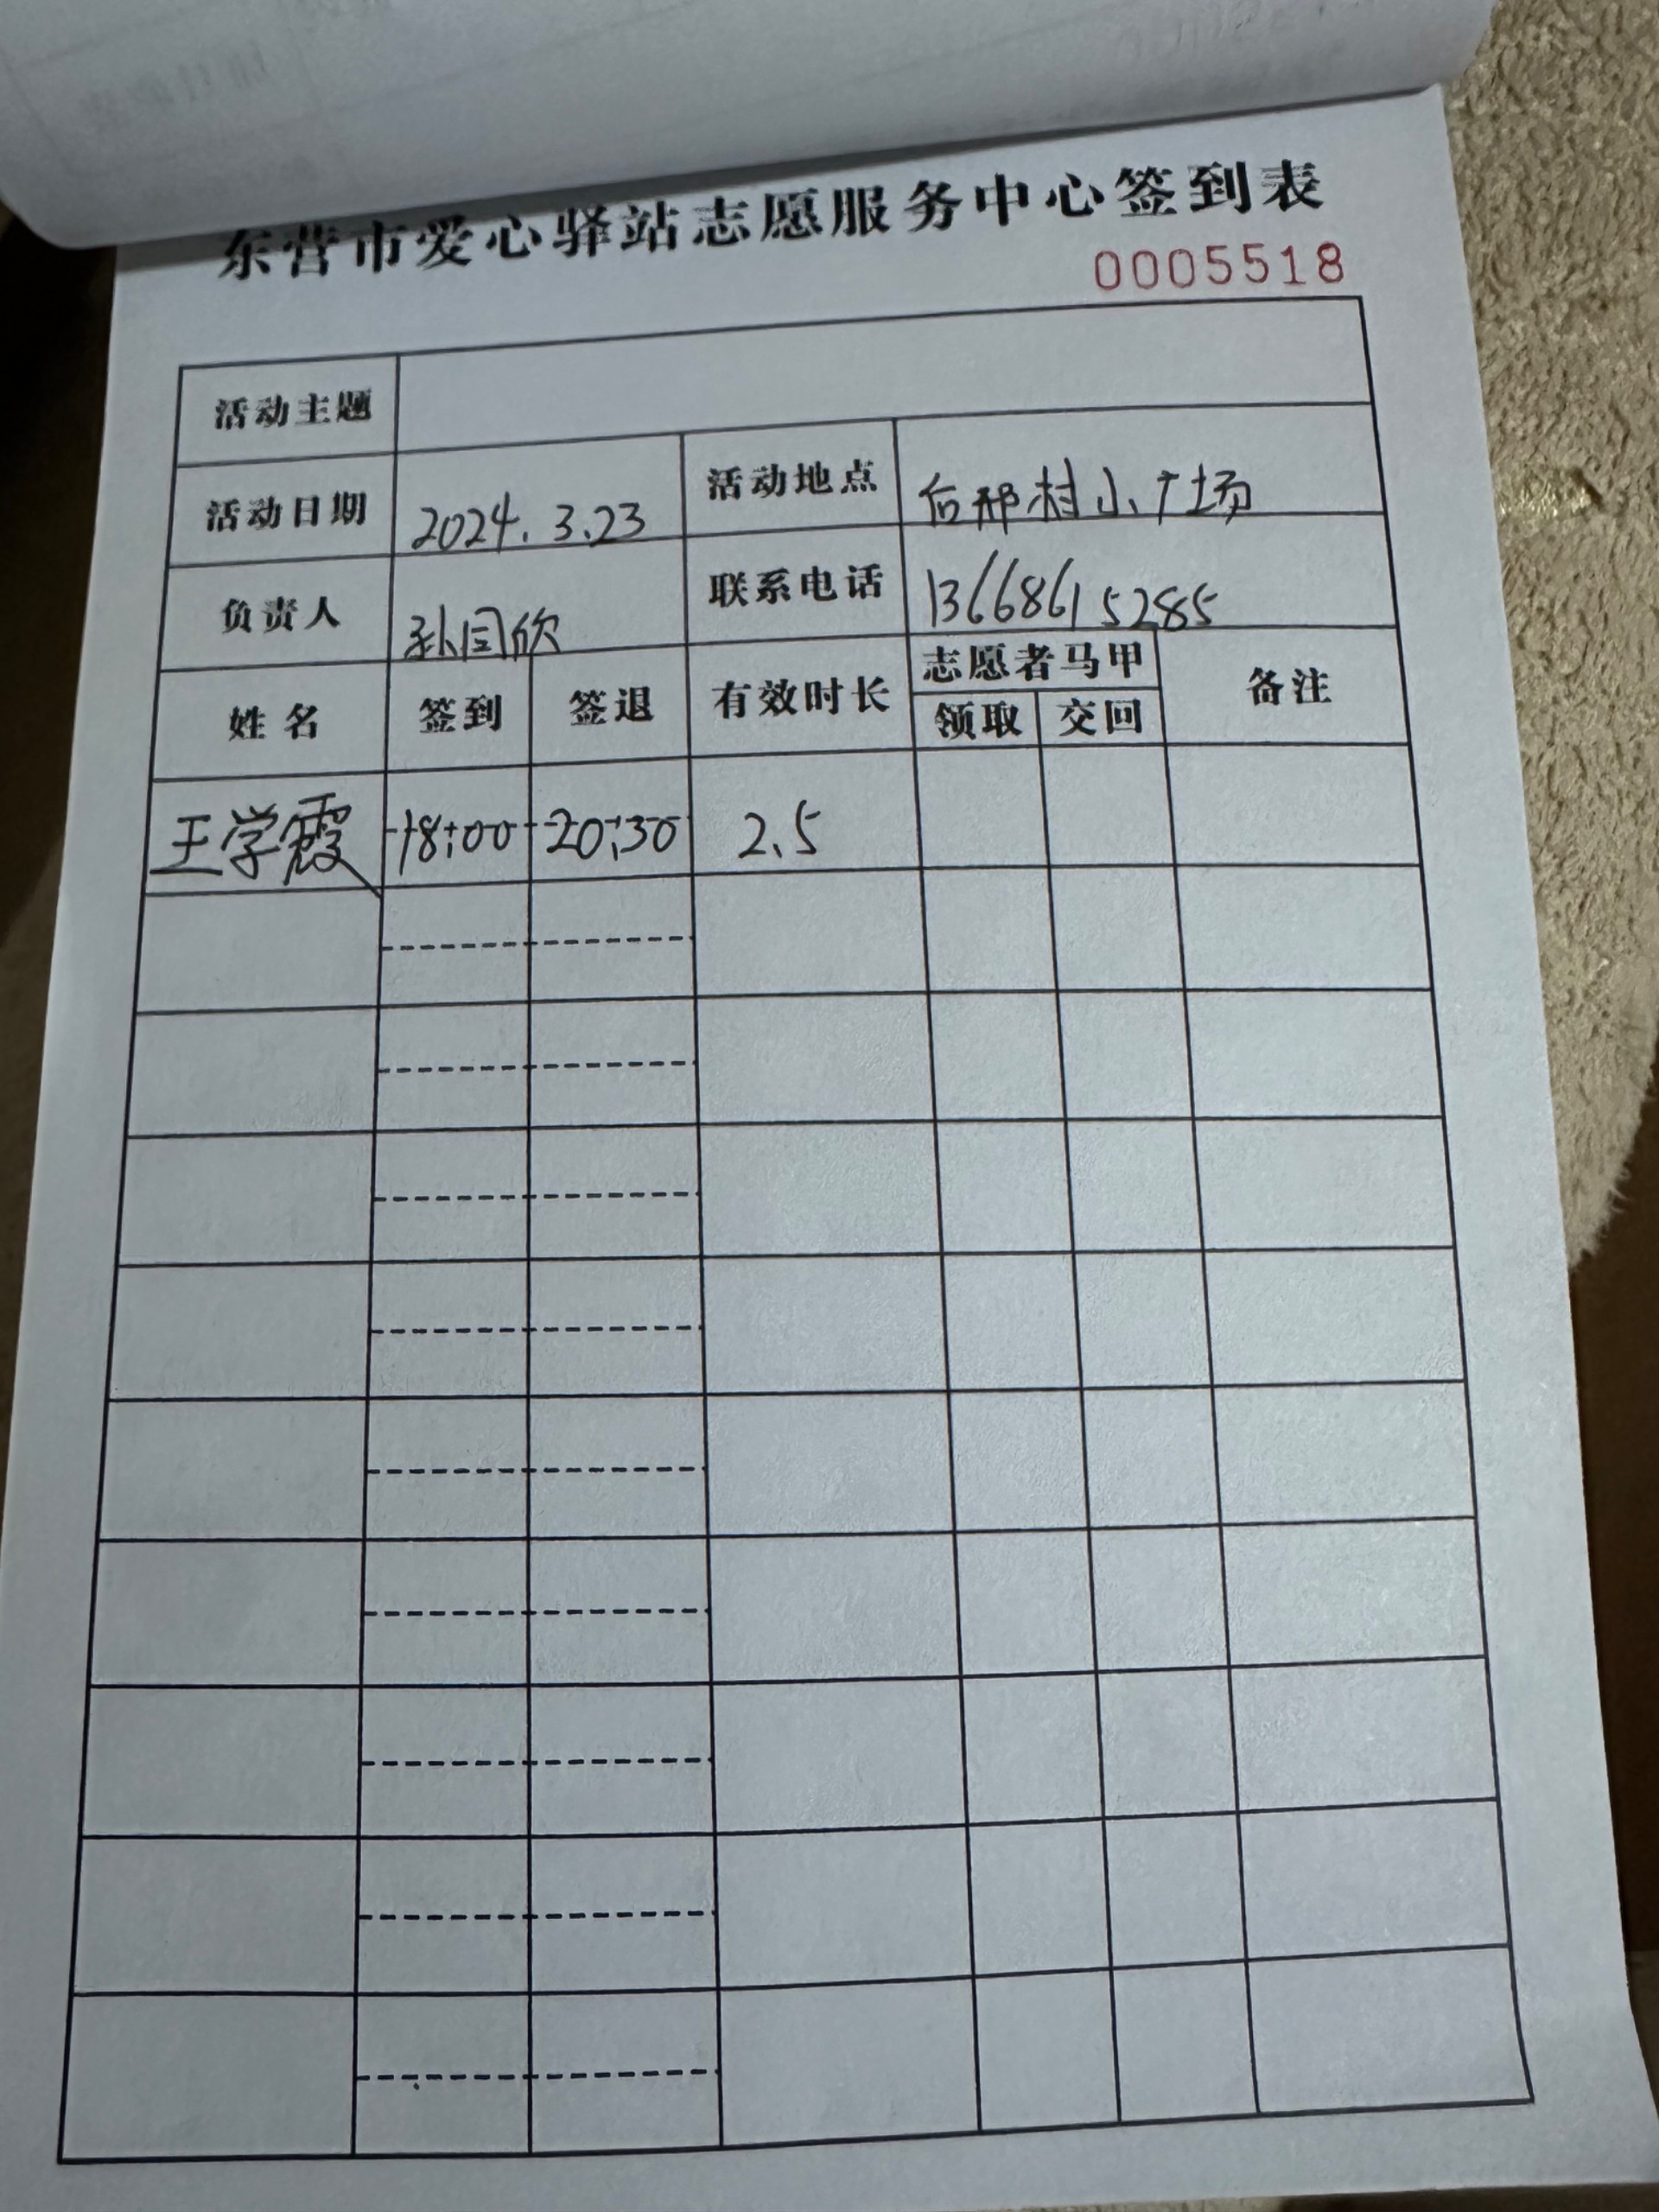 东营市爱心驿站志愿服务中心签到表
0005518
活动主题
活动日期 2024.3.23 活动地点 后邢村小广场
负责人 孙国欣 联系电话 13668615285
姓名 签到 签退 有效时长 志愿者马甲 备注
领取 交回
王学霞 18:00 20:30 2.5